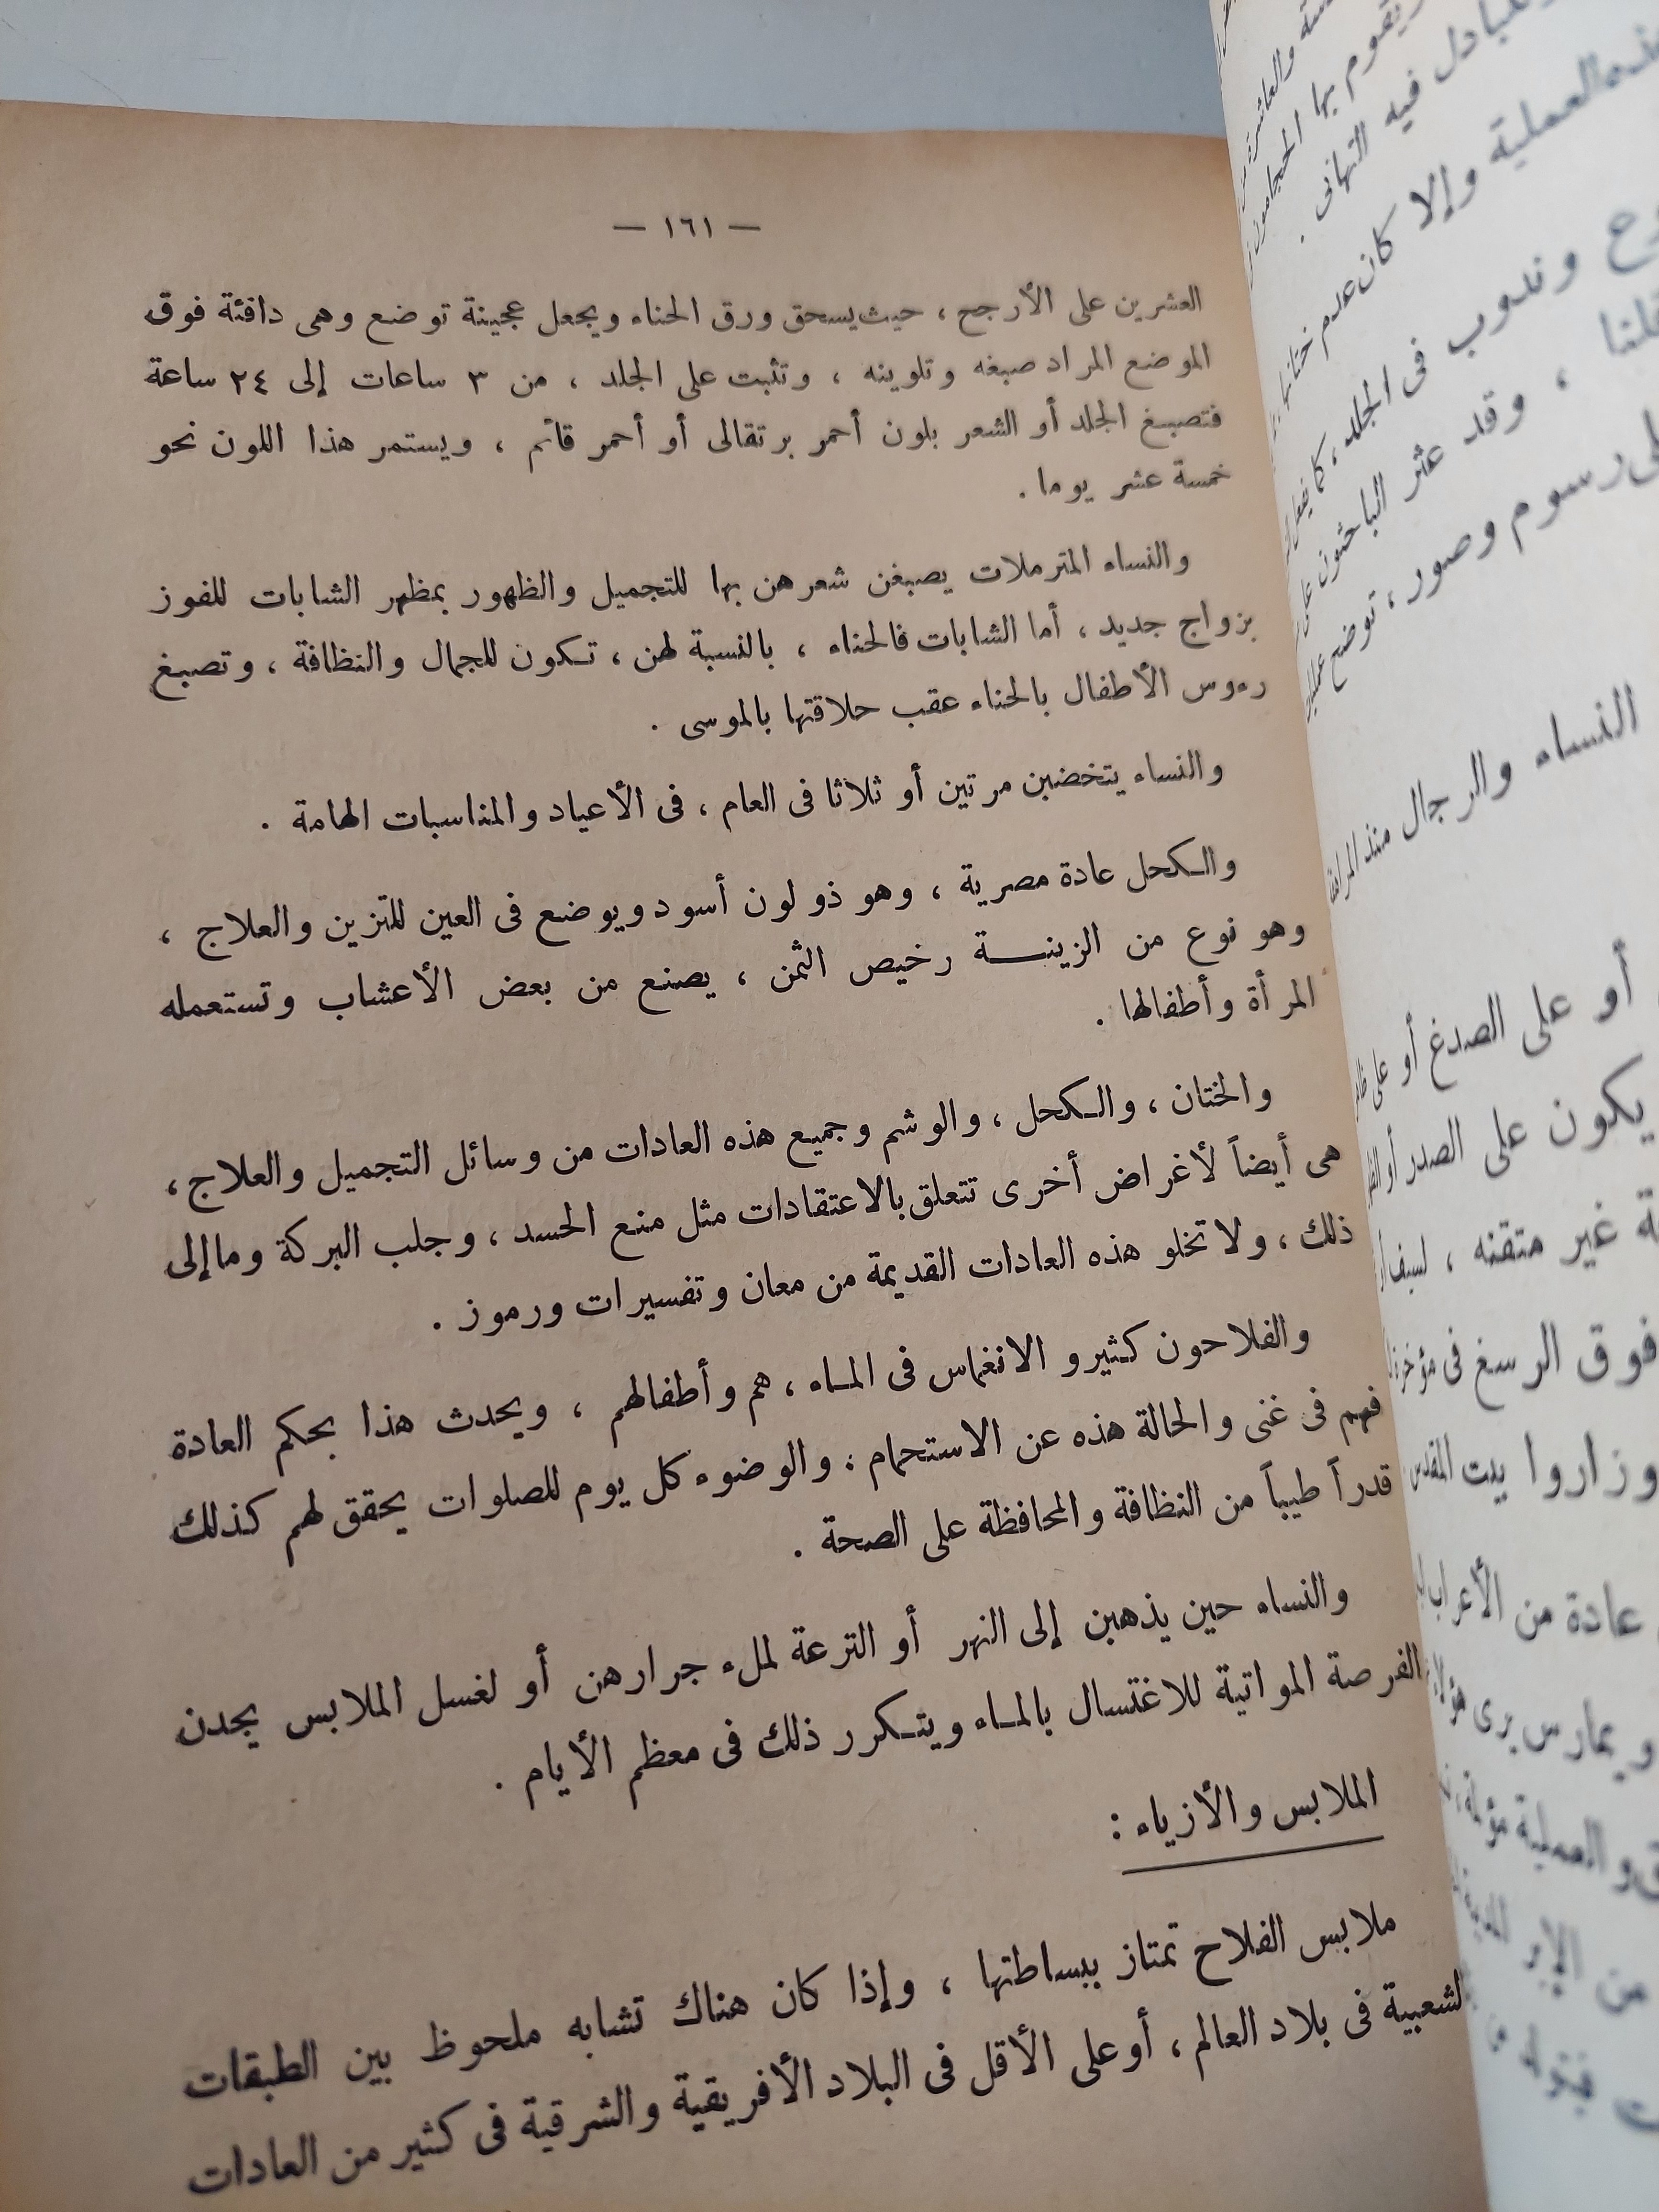 — ١٦١ —
العشرين على الأرجح ، حيث يسحق ورق الحناء ويجعل عجينة توضع وهى دافئة فوق
الموضع المراد صبغه وتلوينه ، وتثبت على الجلد ، من ٣ ساعات إلى ٢٤ ساعة
فتصبغ الجلد أو الشعر بلون أحمر برتقالى أو أحمر قاتم ، ويستمر هذا اللون نحو
خمسة عشر يوما .
والنساء المترملات يصبغن شعرهن بها للتجميل والظهور بمظهر الشابات للفوز
بزواج جديد ، أما الشابات فالحناء ، بالنسبة لهن ، تكون للجمال والنظافة ، وتصبغ
رءوس الأطفال بالحناء عقب حلاقتها بالموسى .
والنساء يتخضبن مرتين أو ثلاثا فى العام ، فى الأعياد والمناسبات الهامة .
والكحل عادة مصرية ، وهو ذو لون أسود ويوضع فى العين للتزين والعلاج ،
وهو نوع من الزينة رخيص الثمن ، يصنع من بعض الأعشاب وتستعمله
المرأة وأطفالها .
والختان ، والكحل ، والوشم وجميع هذه العادات من وسائل التجميل والعلاج ،
هى أيضاً لأغراض أخرى تتعلق بالاعتقادات مثل منع الحسد ، وجلب البركة وما إلى
ذلك ، ولا تخلو هذه العادات القديمة من معان وتفسيرات ورموز .
والفلاحون كثيرو الانغماس فى الماء ، هم وأطفالهم ، ويحدث هذا بحكم العادة
فهم فى غنى والحالة هذه عن الاستحمام ؛ والوضوء كل يوم للصلوات يحقق لهم كذلك
قدراً طيباً من النظافة والمحافظة على الصحة .
والنساء حين يذهبن إلى النهر أو الترعة لملء جرارهن أو لغسل الملابس يجدن
الفرصة المواتية للاغتسال بالماء ويتكرر ذلك فى معظم الأيام .
الملابس والأزياء :
ملابس الفلاح تمتاز ببساطتها ، وإذا كان هناك تشابه ملحوظ بين الطبقات
لشعبية فى بلاد العالم ، أو على الأقل فى البلاد الأفريقية والشرقية فى كثير من العادات
والعاشرة
يقوم بها الحجامون
فيه التهانى .
العملية وإلا كان عدم ختانها
وندوب فى الجلد ، كما يفعل
، وقد عثر الباحثون على
رسوم وصور ، توضح عملية
النساء والرجال منذ
أو على الصدغ أو على
يكون على الصدر أو
غير متقنه ،
فوق الرسغ فى
وزاروا بيت المقدس
عادة من الأعراب
ويمارس
والعملية مؤلمة
من الإبر